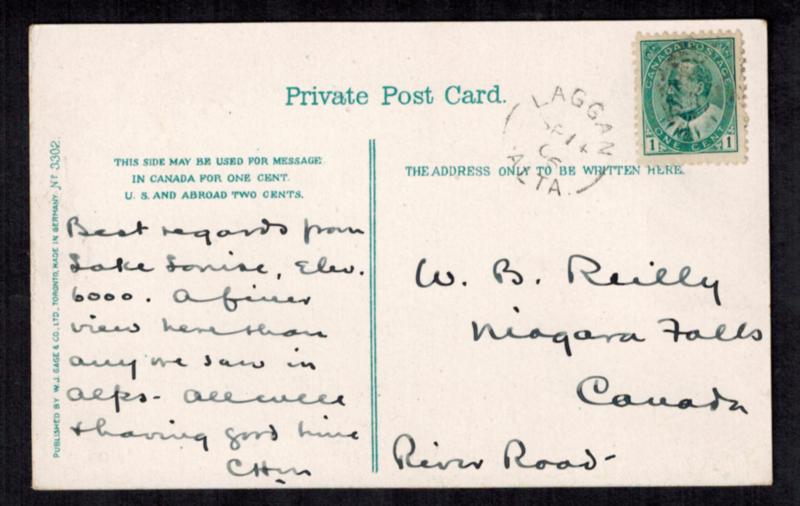 Private Post Card.
CANADA POSTAGE
1 ONE CENT 1
LAGGAN
SP 14
06
ALTA.
THIS SIDE MAY BE USED FOR MESSAGE
IN CANADA FOR ONE CENT.
U. S. AND ABROAD TWO CENTS.
THE ADDRESS ONLY TO BE WRITTEN HERE.
PUBLISHED BY W. J. GAGE & CO., LTD., TORONTO, MADE IN GERMANY. No 3302.
Best regards from
Lake Louise, Elev.
6000. A finer
view here than
any we saw in
alps - all well
& having good time
W. B. Reilly
Niagara Falls
Canada
River Road